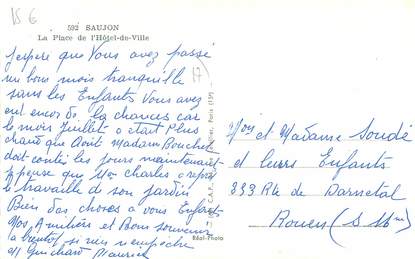 592 SAUJON
La Place de l'Hôtel-de-Ville
J'espere que Vous avez passé
un bons mois tranquille
sans les Enfants Vous avez
ent encor de la chances car
le mois Juillet a était Plus
chaud que Aoit Madam Bouchet
doit conti les jours maintenant
je pense que Mr charles a repri
le travaille de son jardin
Bien das choses a vous Enfants
nos Amitiers et Bons souvenir
a bientot si rien n'empeche
Guichard Maurice
Réal-Photo
Mon et Madame Soudé
et leurs Enfants
333 Rte de Darnetal
Rouen (S Mme)